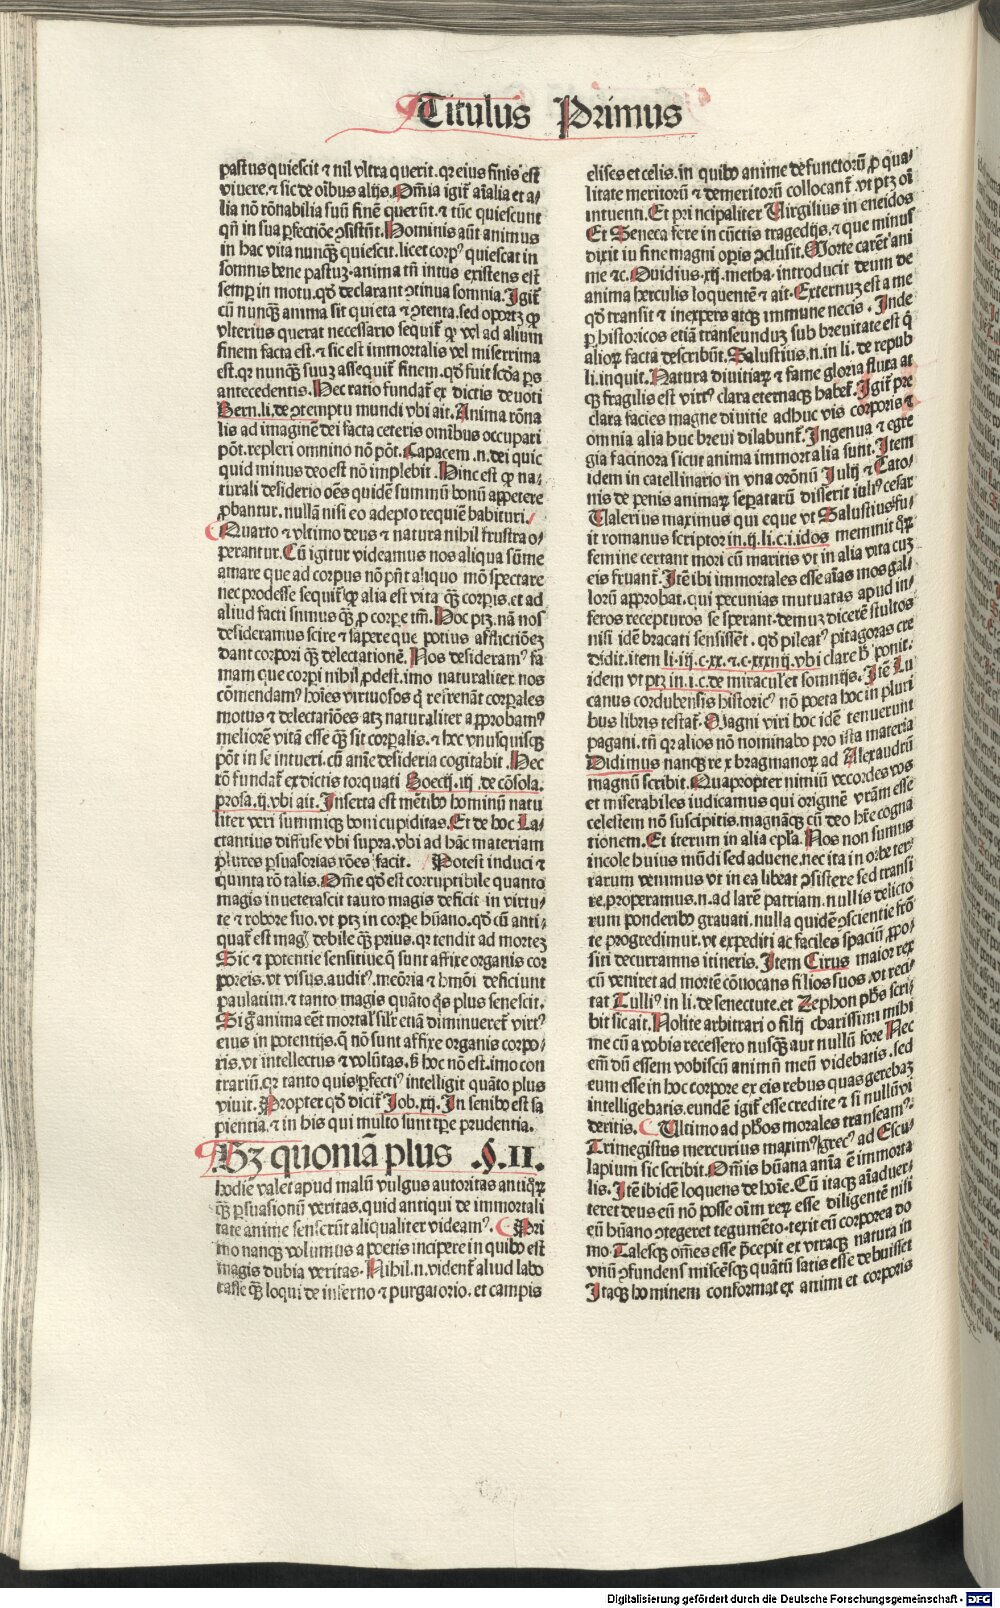 Titulus Primus
pastus quiescit ⁊ nil vltra querit. qꝛ eius finis est
viuere. ⁊ sic de oı̄bus alijs. Om̄ia igit̄ aı̄alia et a-
lia nō rōnabilia suū finē querūt. ⁊ tūc quiescunt
qn̄ in sua ꝑfectiōe ꝯsistūt. Hominis aūt animus
in hac vita nunqꝫ quiescit. licet corpꝰ quiescat in
somnis bene pastuꝫ. anima tn̄ intus existens est
semꝑ in motu. qd̓ declarant ꝯtinua somnia. Igit̄
cū nunqꝫ anima sit quieta ⁊ ꝯtenta. sed oportꝫ ꝙ
vlterius querat necessario sequit̄ ꝙ vel ad alium
finem facta est. ⁊ sic est immortalis vel miserrima
est. qꝛ nunqꝫ suuꝫ assequit̄ finem. qd̓ fuit scd̓a ꝑs
antecedentis. Hec ratio fundat̄ ex dictis deuoti
Bern. li. de ꝯtemptu mundi vbi ait. Anima rōna
lis ad imaginē dei facta ceteris omı̄bus occupari
pōt. repleri omnino nō pōt. Capacem .n. dei quic
quid minus deo est nō implebit. Hinc est ꝙ na-
turali desiderio oēs quidē summū bonū appetere
ꝓbantur. nullā nisi eo adepto requiē habituri.
Quarto ⁊ vltimo deus ⁊ natura nihil frustra o-
perantur. Cū igitur videamus nos aliqua sūme
amare que ad corpus nō pn̄t aliquo mō spectare
nec prodesse sequit̄ ꝙ alia est vita qꝫ corꝑis. et ad
aliud facti sumus qꝫ ꝓ corpe tm̄. Hoc ptꝫ. nā nos
desideramus scire ⁊ sapere que potius afflictiōeꝫ
dant corpori qꝫ delectationē. Nos desideramꝰ fa
mam que corpi nihil ꝓdest. imo naturaliter nos
cōmendamꝰ hoı̄es virtuosos q̄ refrenāt corꝑales
motus ⁊ delectatiōes atꝫ naturaliter approbamꝰ
meliorē vitā esse qꝫ sit corꝑalis. ⁊ hoc vnusquisqꝫ
pōt in se intueri. cū anı̄e desideria cogitabit. Hec
rō fundat̄ ex dictis torquati Boecij. iij. de cōsola.
prosa. ij. vbi ait. Inserta est mētibo hominū natu
liter veri summiqꝫ boni cupiditas. Et de hoc La-
ctantius diffuse vbi supra. vbi ad hāc materiam
plures ꝑsuasorias rōes facit. Potest induci ⁊
quinta rō talis. Om̄e qd̓ est corruptibile quanto
magis inueterascit tanto magis deficit in virtu-
te ⁊ robore suo. vt ptꝫ in corpe hūano. qd̓ cū anti-
quat̄ est magꝭ debile qꝫ prius. qꝛ tendit ad morteꝫ
Sic ⁊ potentie sensitiue q̄ sunt affixe organis cor
poreis. vt visus. auditꝰ. meōria ⁊ hmōi deficiunt
paulatim. ⁊ tanto magis quāto qꝭ plus senescit.
Si g̊ anima eēt mortal' silr etiā diminueret̄ virtꝰ
eius in potentijs. q̄ nō sunt affixe organis corpo-
ris. vt intellectus ⁊ volūtas. sꝫ hoc nō est. imo con
trariū. qꝛ tanto quis ꝑfectiꝰ intelligit quāto plus
viuit. Propter qd̓ dicit̄ Job. xij. In senibo est sa
pientia. ⁊ in his qui multo sunt tꝑe prudentia.
Sꝫ quoniā plus .§.II.
hodie valet apud malū vulgus autoritas antiqꝝ
qꝫ ꝑsuasionū veritas. quid antiqui de immortali
tate anime senserūt aliqualiter videamꝰ. Pri
mo nanqꝫ volumus a poetis incipere in quibo est
magis dubia veritas. Nihil .n. vident̄ aliud labo
rasse qꝫ loqui de inferno ⁊ purgatorio. et campis
elises et celis. in quibo anime defunctorū ꝓ qua-
litate meritorū ⁊ demeritorū collocant̄. vt ptꝫ oı̄
intuenti. Et principaliter Virgilius in eneidos
Et Seneca fere in cūctis tragedijs. ⁊ que minus
dixit in fine magni oꝑis ꝯclusit. Morte carent ani
me ⁊c. Ouidius. xij. metha. introducit deum de
anima herculis loquentē ⁊ ait. Externuꝫ est a me
qd̓ transit ⁊ inexpers atqꝫ immune necis. Inde
ꝑ historicos etiā transeunduꝫ sub breuitate est q̄
alioꝝ facta describūt. Salustius .n. in li. de repub
li. inquit. Natura diuitiaꝝ ⁊ fame gloria fluxa at
qꝫ fragilis est virtꝰ clara eternaqꝫ habet̄. Igit̄ pre
clara facies magne diuitie adhuc vis corporis ⁊
omnia alia huc breui dilabunt̄. Ingenua ⁊ egre
gia facinora sicut anima immortalia sunt. Item
idem in catellinario in vna orōnū Julij ⁊ Cato-
nis de penis animaꝝ separatarū disserit iuliꝰ cesar
Valerius maximus qui eque vt Salustius fu-
it romanus scriptor in. ij. li. c. i. idos meminit qꝛ
femine certant mori cū maritis vt in alia vita cuꝫ
eis fruant̄. Itē ibi immortales esse aı̄as mos gal-
lorū approbat. qui pecunias mutuatas apud in-
feros recepturos se sperant. demuꝫ dicerē stultos
nisi idem bracati sensissēt. qd̓ pileatꝰ pitagoras cre
didit. item li. iij. c. xx. ⁊. c. xxxij. vbi clare h̓ ponit.
idem vt ptꝫ in. i. c. de miracul' et somnijs. Itē Lu
canus cordubensis historicꝰ nō poeta hoc in pluri
bus libris testat̄. Magni viri hoc idē tenuerunt
pagani. tn̄ qꝛ alios nō nominabo pro ista materia
Didimus nanqꝫ rex bragmanoꝝ ad Alexandrū
magnū scribit. Quapropter nimiū vecordes vos
et miserabiles iudicamus qui originē vr̄am esse
celestem nō suscipitis. magnāqꝫ cū deo hr̄e cogna
tionem. Et iterum in alia epl̄a. Nos non sumus
incole huius mūdi sed aduene. nec ita in orbe ter-
rarum venimus vt in ea libeat ꝯsistere sed transi
re. properamus .n. ad larē patriam. nullis delicto
rum ponderibo grauati. nulla quidē ꝯscientie frō
te progredimur. vt expediti ac faciles spaciū ꝓpo-
siti decurramus itineris. Item Cirus maior rex
cū veniret ad mortē cōuocans filios suos. vt reci-
tat Tulliꝰ in li. de senectute. et Zephon ph̄s scri-
bit sic ait. Nolite arbitrari o filij charissimi mihi
me cū a vobis recessero nusqꝫ aut nullū fore Nec
em̄ dū essem vobiscū animū meū videbatis. sed
eum esse in hoc corpore ex eis rebus quas gerebaꝫ
intelligebatis. eundē igit̄ esse credite ⁊ si nullū vi
deritis. Ultimo ad ph̄os morales transeamꝰ.
Trimegistus mercurius maximꝰ grecꝰ ad Escu-
lapium sic scribit. Om̄is hūana anı̄a ē immorta
lis. Itē ibidē loquens de hoı̄e. Cū itaqꝫ aı̄aduer-
teret deus eū nō posse oı̄m reꝝ esse diligentē nisi
eū hūano ꝯtegeret tegumēto. texit eū corporea do
mo. Talesqꝫ om̄es esse p̄cepit ex vtraqꝫ natura in
vnū ꝯfundens miscēsqꝫ quātū satis esse debuisset
Itaqꝫ hominem conformat ex animi et corporis
Digitalisierung gefördert durch die Deutsche Forschungsgemeinschaft - DFG